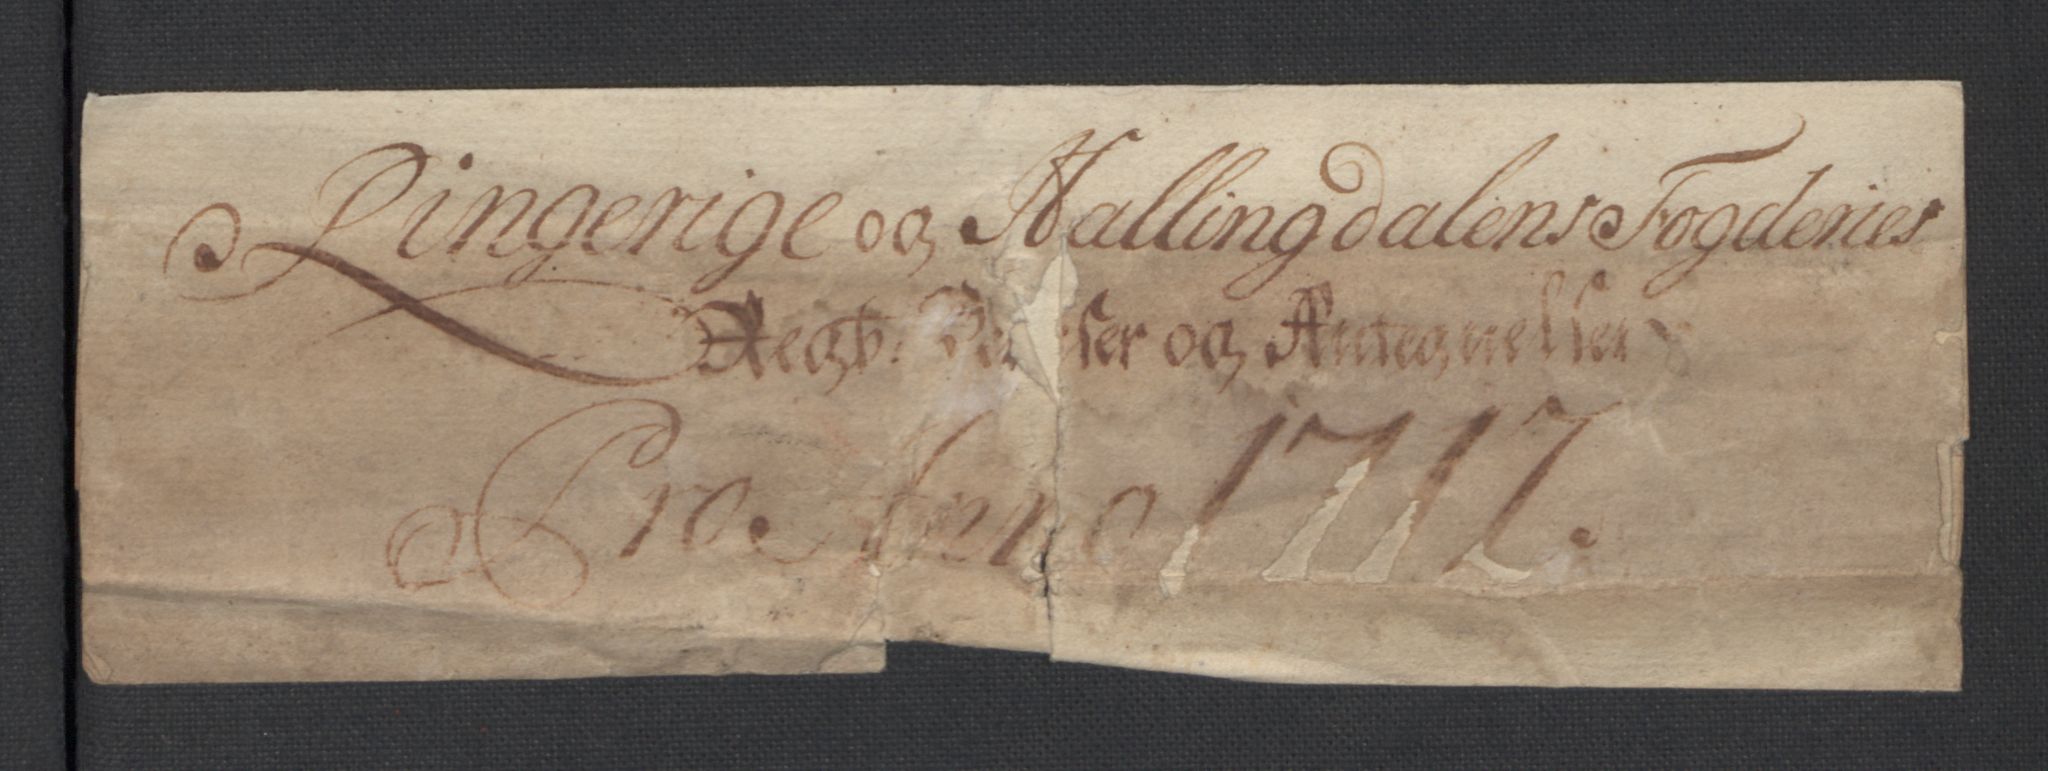 Ringerige og Hallingdalens Fogderies
Regb. og Antegnelser
Pro Anno 1712.